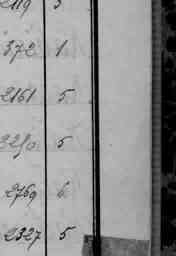 2119 5
372 1
2161 5
3250 5
2769 6
2327 5